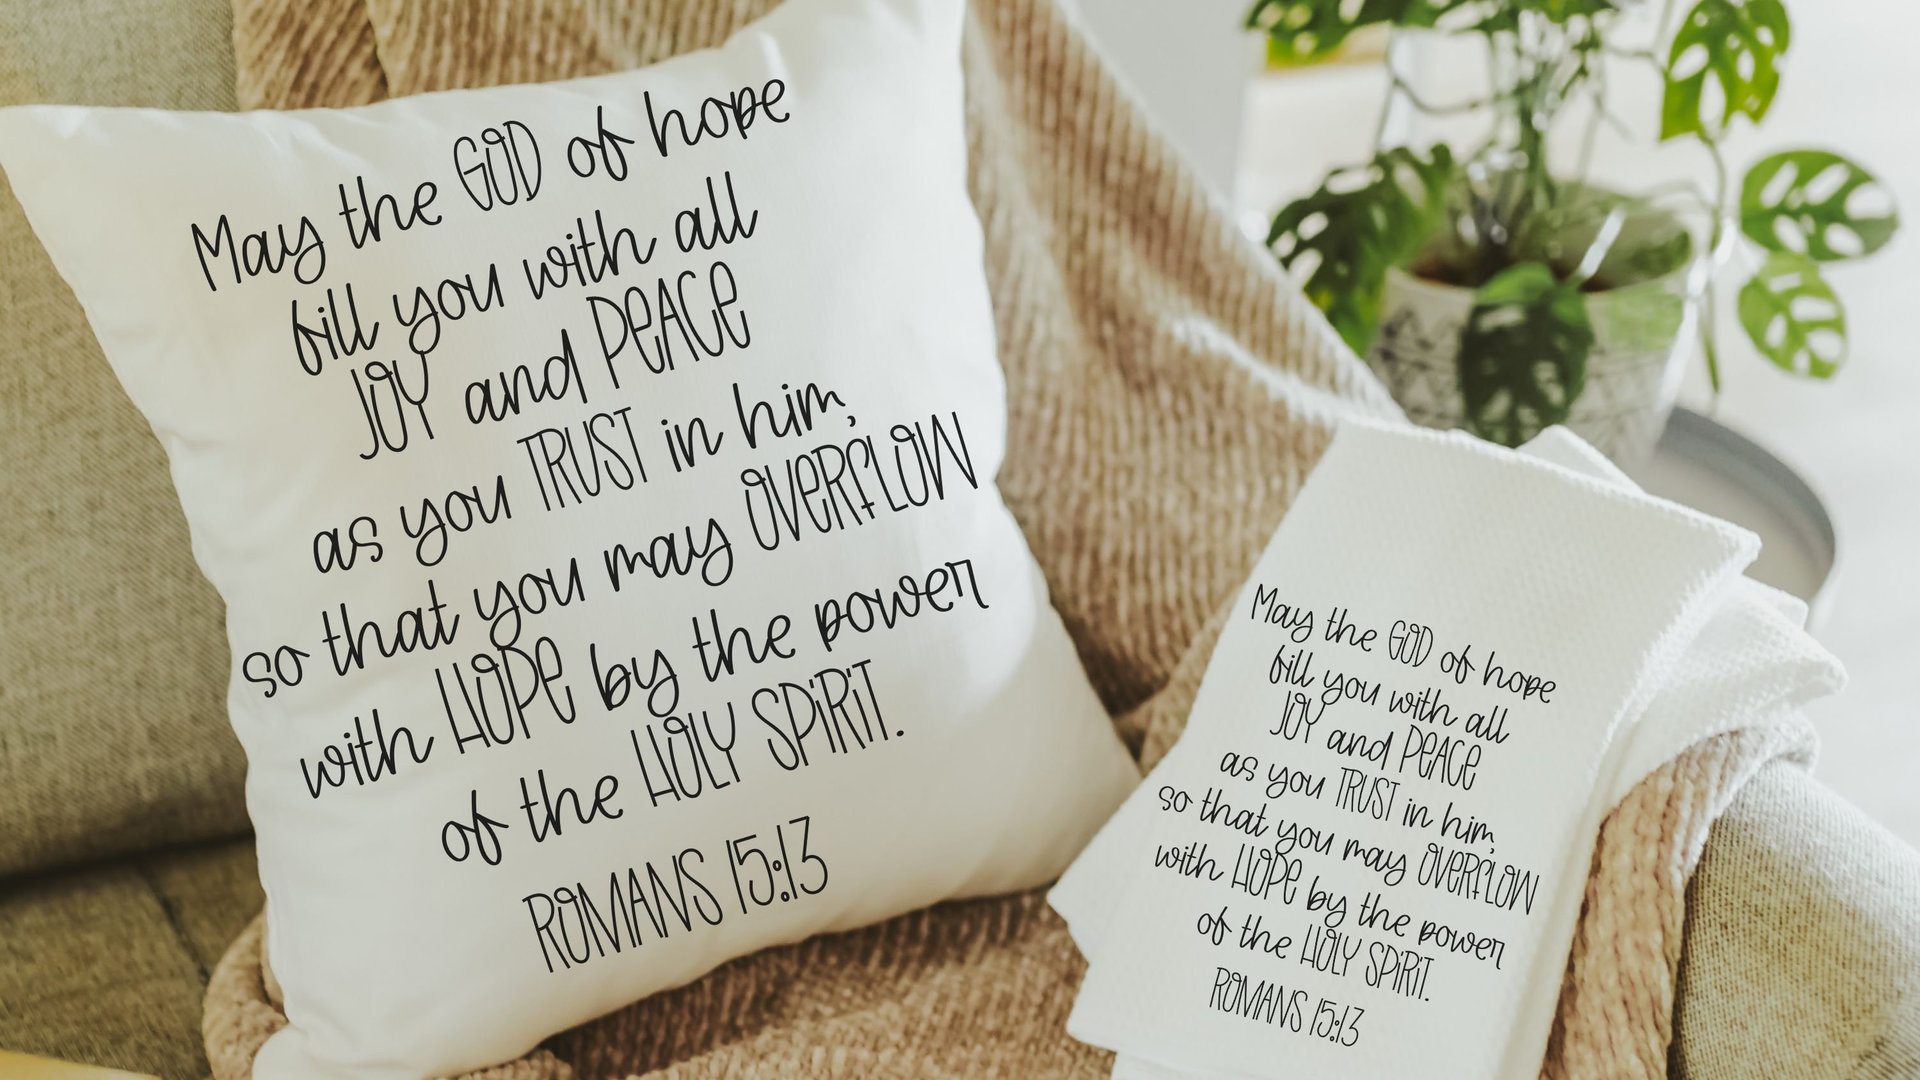 May the GOD of hope
fill you with all
JOY and PEACE
as you TRUST in him,
so that you may OVERFLOW
with HOPE by the power
of the HOLY SPIRIT.
ROMANS 15:13
May the GOD of hope
fill you with all
JOY and PEACE
as you TRUST in him,
so that you may OVERFLOW
with HOPE by the power
of the HOLY SPIRIT.
ROMANS 15:13